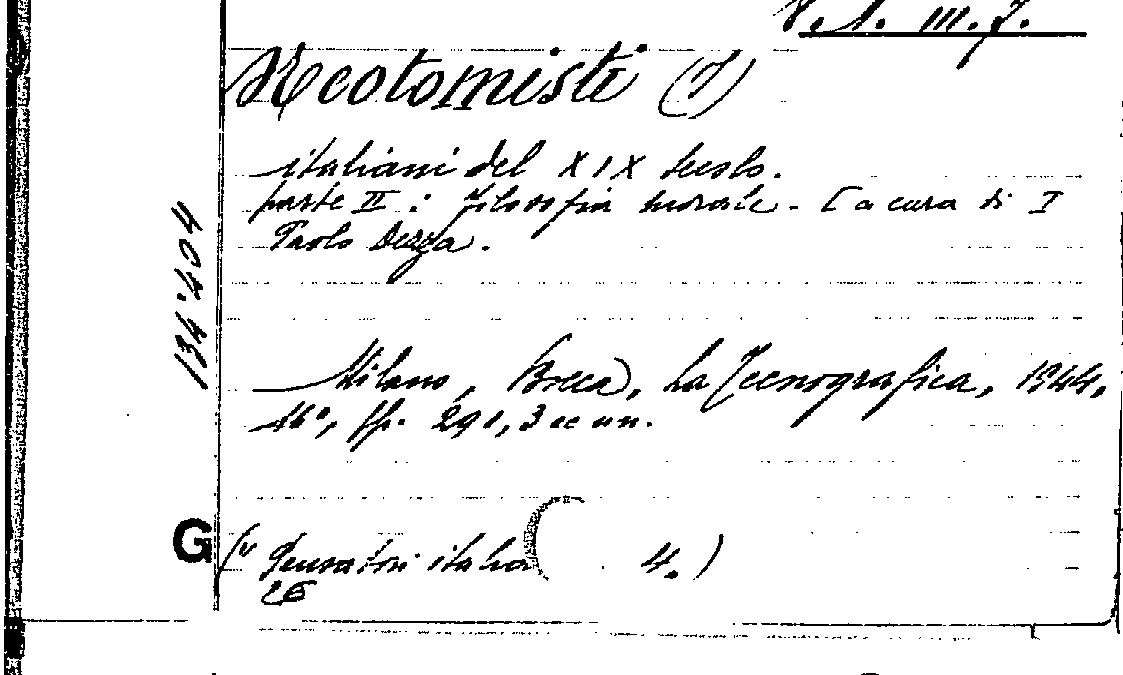 Neotomisti (I)
italiani del XIX secolo.
parte II: filosofia morale. [a cura di]
Paolo Dezza.
134404
Milano, Bocca, La Tecnografica, 1944,
16°, pp. 291, 3 cc nn.
G
( Pensatori italia 4.)